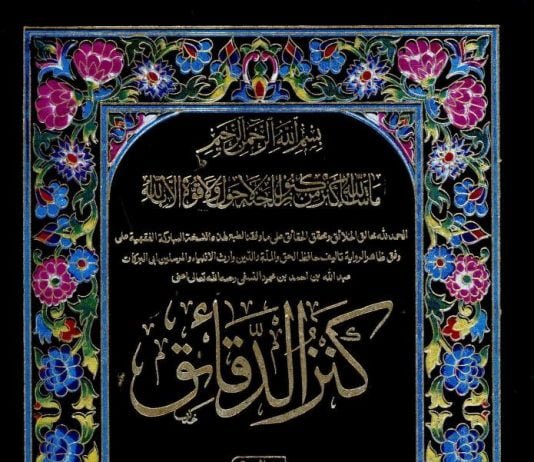 بسم الله الرحمن الرحيم
ما شاء الله كنز من كنوز الجنة لا حول ولا قوة إلا بالله
الحمد لله خالق الخلائق ومحقق الحقائق على ما وفقنا لطبع هذه النسخة المباركة الفقهية على
وفق ظاهر الرواية تاليف حافظ الحق والملة والدين وارث الانبياء والمرسلين ابى البركات
عبد الله بن احمد بن محمود النسفى رحمه الله تعالى اعنى
كنز الدقائق